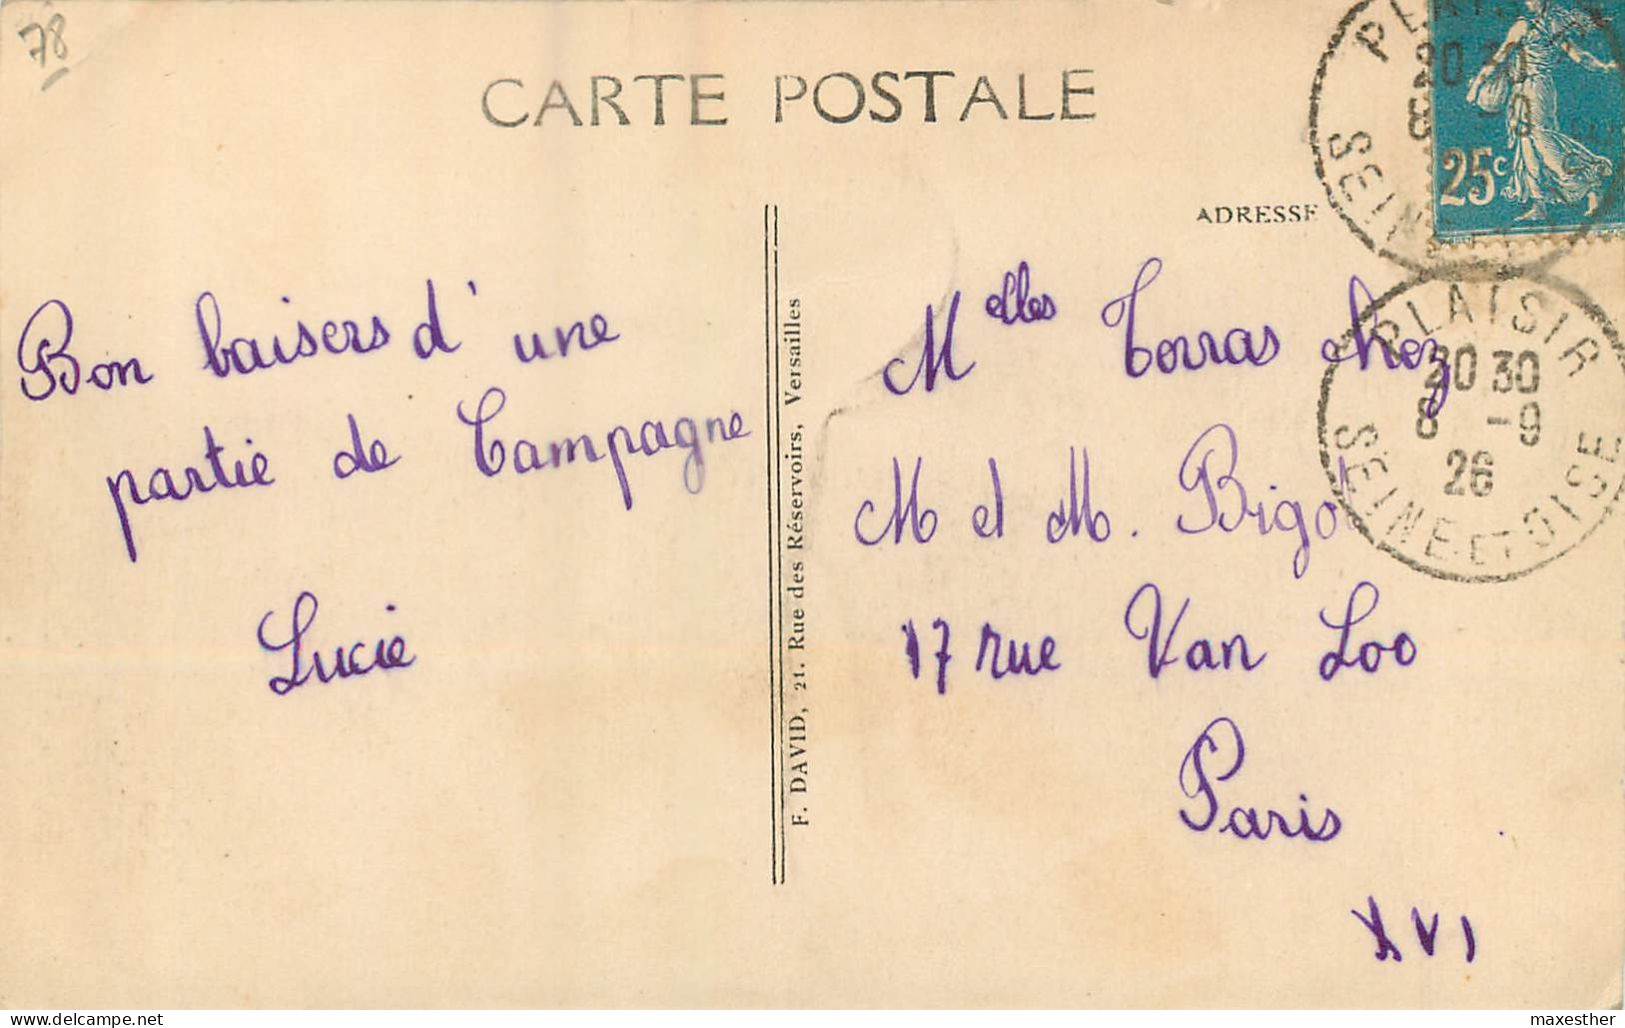 78
CARTE POSTALE
ADRESSE
25c
20 30
SEINE ET
PLAISIR
20 30
8 -9
26
SEINE-ET-OISE
Bon baisers d'une
partie de Campagne
Lucie
F. DAVID, 21. Rue des Réservoirs, Versailles
Melles Torras chez
M et M. Bigot
17 rue Van Loo
Paris
XVI
delcampe.net
maxesther